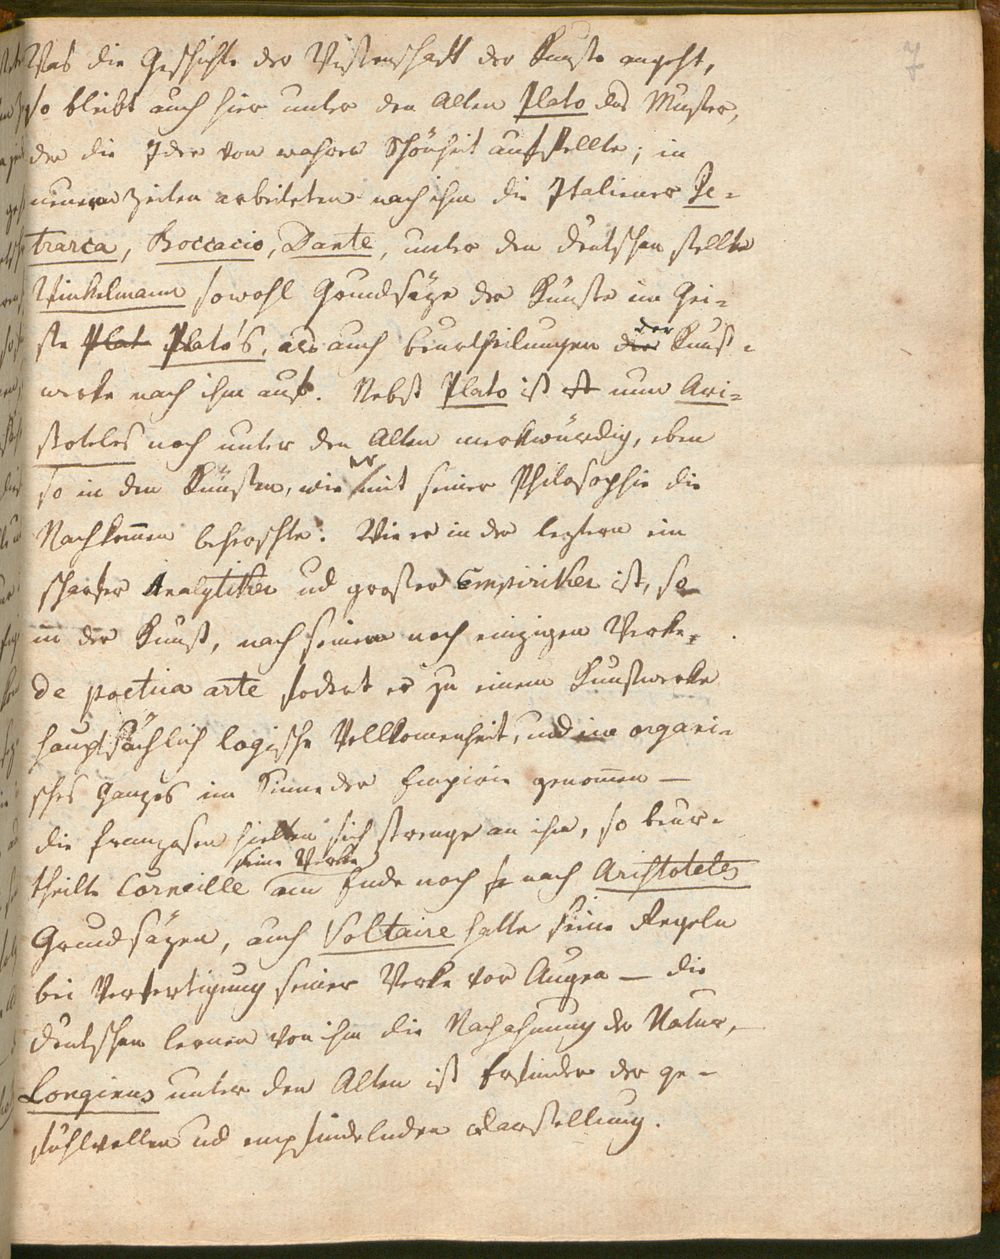 7
Was die Geschichte der Wissenschaft der Künste angeht,
so bleibt auch hier unter den Alten Plato das Muster,
der die Idee von wahrer Schönheit aufstellte; in
neuern Zeiten arbeiteten nach ihm die Italiener Pe-
trarca, Boccacio, Dante, unter den Deutschen stellte
Winkelmann sowohl Grundsäze der Künste im Gei-
ste Plat Plato's, als auch Beurtheilungen der der Kunst-
werke nach ihm auf. Nebst Plato ist nun Ari-
stoteles noch unter den Alten merkwürdig, eben
so in den Künsten, wie er mit seiner Philosophie die
Nachkom̅en beherschte. Wie er in der leztern ein
scharfer Analytiker und großer Empiriker ist, so
in der Kunst, nach seinem noch einzigen Werke,
de poetica arte fodert er zu einem Kunstwerke
hauptsächlich logische Vollkomenheit, und ein organi-
sches Ganzes im Sinne der Empirie genom̅en —
die Franzosen hielten sich strenge an ihn, so beur-
theilte Corneille seine Werke am Ende noch nach Aristoteles
Grundsäzen, auch Voltaire hatte seine Regeln
bei Verfertigung seiner Werke vor Augen — die
Deutschen lernen von ihm die Nachahmung der Natur,
Longinus unter den Alten ist Erfinder der ge-
fühlvollen und empfindelnden Darstellung.